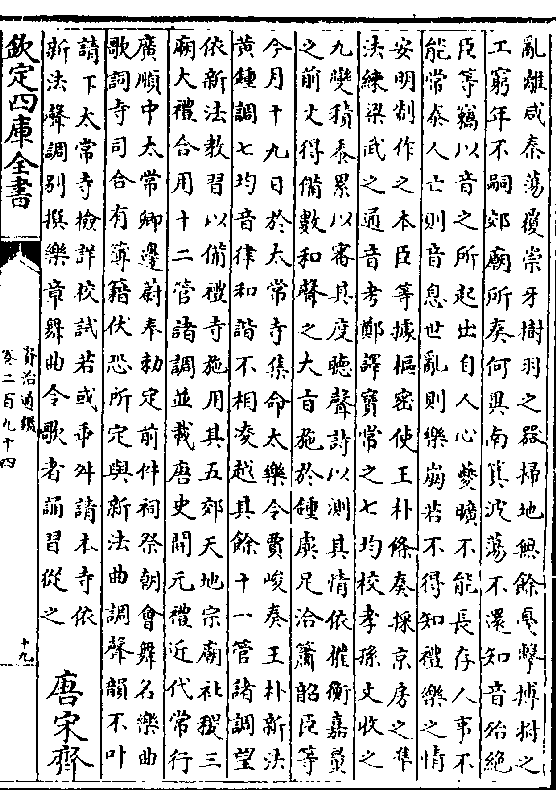 亂離咸秦蕩覆崇牙樹羽之器掃地無餘戛擊搏拊之
工窮年不嗣郊廟所奏何異南箕波蕩不還知音殆絶
臣等竊以音之所起出自人心夔曠不能長存人事不
能常泰人亡則音息世亂則樂崩若不得知禮樂之情
安明制作之本臣等據樞密使王朴條奏採京房之準
法練梁武之通音考鄭譯寶常之七均校孝孫文收之
九變積黍累以審其度聽聲詩以測其情依權衡嘉量
之前文得備數和聲之大旨施於鍾虡足洽簫韶臣等
今月十九日於太常寺集命太樂令賈峻奏王朴新法
黃鍾調七均音律和諧不相凌越其餘十一管諸調望
依新法教習以備禮寺施用其五郊天地宗廟社稷三
朝大禮合用十二管諸調並載唐史開元禮近代常行
廣順中太常卿邊蔚奉勅定前件祠祭朝會舞名樂曲
歌詞寺司合有簿籍伏恐所定與新法曲調聲韻不叶
請下太常寺檢詳校試若或乖舛請本寺依
新法聲調别撰樂章舞曲令歌者誦習從之
欽定四庫全書
資治通鑑
卷二百九十四
十九
唐宋齋